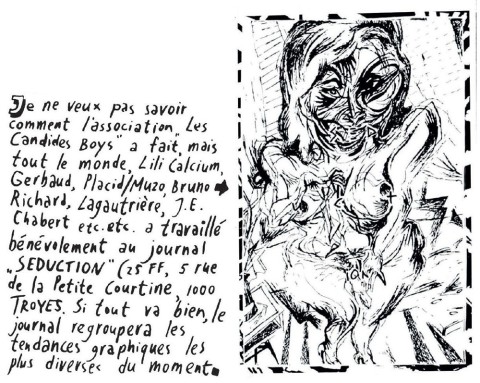 Je ne veux pas savoir
comment l'association „Les
Candides Boys" a fait, mais
tout le monde, Lili Calcium,
Gerbaud, Placid/Muzo, Bruno ➡
Richard, Lagautrière, J.E.
Chabert etc. etc. a travaillé
bénévolement au journal
„SEDUCTION" (25 FF, 5 rue
de la Petite Courtine, 1000
TROYES. Si tout va bien, le
journal regroupera les
tendances graphiques les
plus diverses du moment.